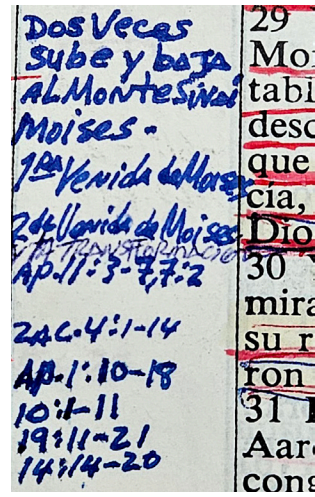 Dos Veces
sube y baja
AL Monte Sinai
Moises -
1RA Venida de Moises
2da Venida de Moises
Y LA TRANSFORMACION
AP. 11:3-7, 7:2
ZAC. 4:1-14
AP. 1:10-18
10:1-11
19:11-21
14:14-20
29
Moi
tabl
desc
que
cía,
Dio
30 Y
mira
su r
ron
31
Aar
cong